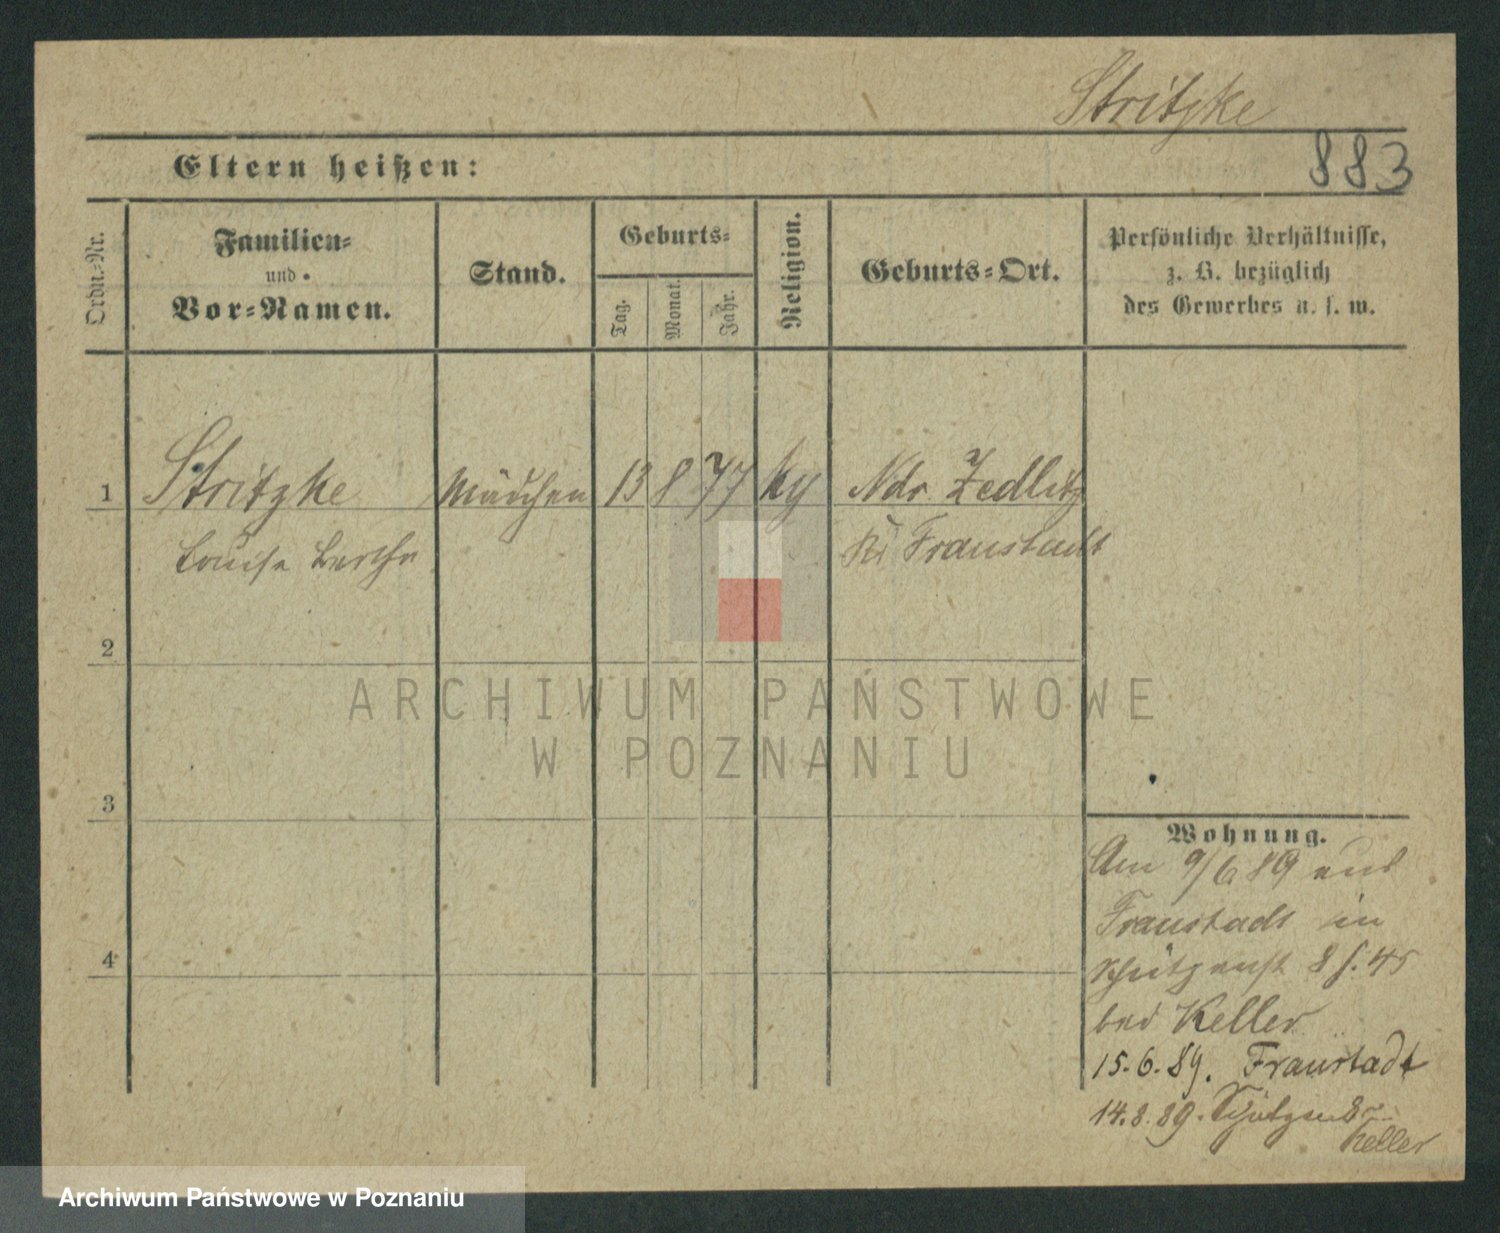 Stritzke
883
Eltern heißen:
Ordn.-Nr.
Familien-
und
Vor-Namen.
Stand.
Geburts-
Tag.
Monat.
Jahr.
Religion.
Geburts-Ort.
Persönliche Verhältnisse,
z. B. bezüglich
des Gewerbes u. s. w.
1 Stritzke Mädchen 13 8 77 Ndr. Zedlitz
Louise Bertha Fraustadt
2
3
4
Wohnung.
Am 9/6 89 aus
Fraustadt in
Schützenst 8 45
bei Keller
15.6.89. Fraustadt
14.8.89. Schützen 8
Keller
ARCHIWUM PAŃSTWOWE
W POZNANIU
Archiwum Państwowe w Poznaniu